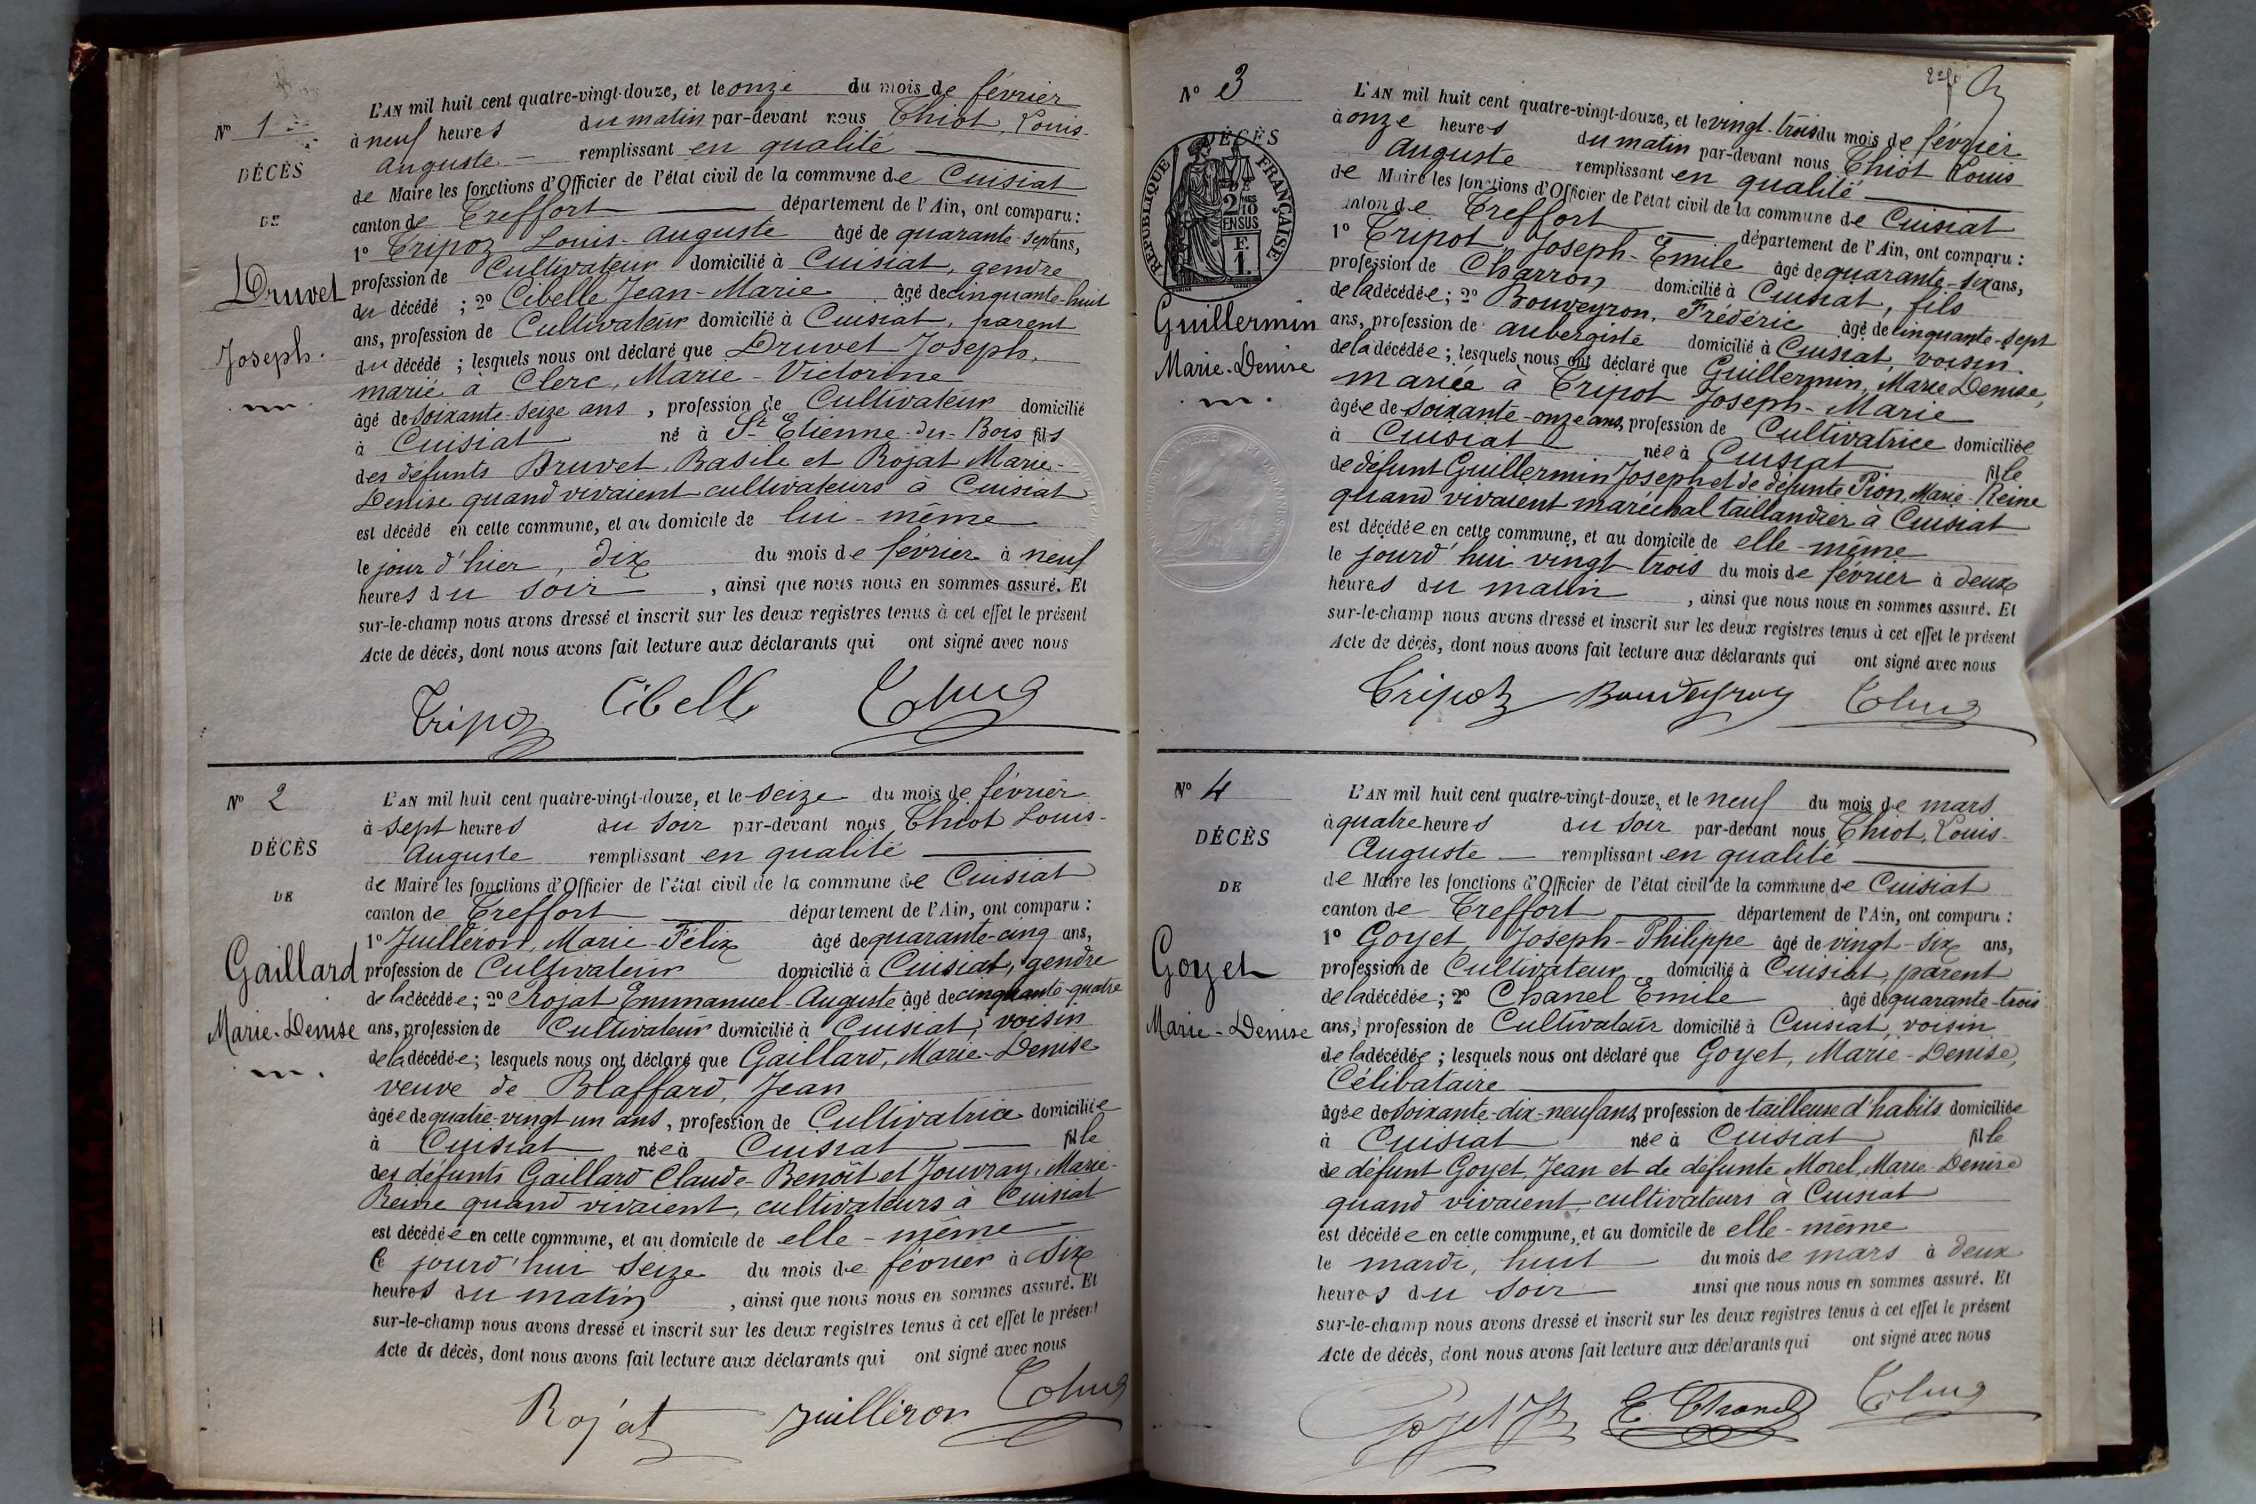 N° 1
DÉCÈS
DE
Druvet
Joseph.
L'AN mil huit cent quatre-vingt-douze, et le onze du mois de février
à neuf heures du matin par-devant nous Thiot, Louis-
Auguste remplissant en qualité
de Maire les fonctions d'Officier de l'état civil de la commune de Cuisiat
canton de Treffort département de l'Ain, ont comparu :
1° Tripoz Louis-Auguste âgé de quarante-sept ans,
profession de Cultivateur domicilié à Cuisiat, gendre
du décédé ; 2° Cibelle Jean-Marie âgé de cinquante-huit
ans, profession de Cultivateur domicilié à Cuisiat, parent
du décédé ; lesquels nous ont déclaré que Druvet Joseph,
marié à Clerc, Marie-Victorine
âgé de soixante-seize ans, profession de Cultivateur domicilié
à Cuisiat né à St Etienne-du-Bois fils
des défunts Druvet, Basile et Rojat Marie-
Denise quand vivaient cultivateurs à Cuisiat
est décédé en cette commune, et au domicile de lui-même
le jour d'hier, dix du mois de février à neuf
heures du soir, ainsi que nous nous en sommes assuré. Et
sur-le-champ nous avons dressé et inscrit sur les deux registres tenus à cet effet le présent
Acte de décès, dont nous avons fait lecture aux déclarants qui ont signé avec nous
Tripoz Cibelle
N° 2
DÉCÈS
DE
Gaillard
Marie-Denise
L'AN mil huit cent quatre-vingt-douze, et le seize du mois de février
à sept heures du soir par-devant nous Thiot Louis-
Auguste remplissant en qualité
de Maire les fonctions d'Officier de l'état civil de la commune de Cuisiat
canton de Treffort département de l'Ain, ont comparu :
1° Juilléron, Marie-Félix âgé de quarante-cinq ans,
profession de Cultivateur domicilié à Cuisiat, gendre
de la décédée ; 2° Rojat Emmanuel-Auguste âgé de cinquante-quatre
ans, profession de Cultivateur domicilié à Cuisiat, voisin
de la décédée ; lesquels nous ont déclaré que Gaillard, Marie-Denise
veuve de Blaffard, Jean
âgée de quatre-vingt un ans, profession de Cultivatrice domiciliée
à Cuisiat née à Cuisiat fille
des défunts Gaillard Claude-Benoît et Jouvray, Marie-
Reine quand vivaient, cultivateurs à Cuisiat
est décédée en cette commune, et au domicile de elle-même
le jourd'hui seize du mois de février à six
heures du matin, ainsi que nous nous en sommes assuré. Et
sur-le-champ nous avons dressé et inscrit sur les deux registres tenus à cet effet le présent
Acte de décès, dont nous avons fait lecture aux déclarants qui ont signé avec nous
Rojat Juilléron
N° 3
DÉCÈS
RÉPUBLIQUE FRANÇAISE
2/10
EN SUS
F.
1.
Guillermin
Marie-Denise
L'AN mil huit cent quatre-vingt-douze, et le vingt-trois du mois de février
à onze heures du matin par-devant nous Thiot Louis
Auguste remplissant en qualité
de Maire les fonctions d'Officier de l'état civil de la commune de Cuisiat
canton de Treffort département de l'Ain, ont comparu :
1° Tripot, Joseph-Emile âgé de quarante-six ans,
profession de Charron domicilié à Cuisiat, fils
de la décédée ; 2° Bouveyron, Frédéric âgé de cinquante-sept
ans, profession de aubergiste domicilié à Cuisiat, voisin
de la décédée ; lesquels nous ont déclaré que Guillermin, Marie Denise,
mariée à Tripot Joseph-Marie
âgée de soixante-onze ans, profession de Cultivatrice domiciliée
à Cuisiat née à Cuisiat fille
de défunt Guillermin Joseph et de défunte Pion, Marie-Reine
quand vivaient maréchal taillandier à Cuisiat
est décédée en cette commune, et au domicile de elle-même
le jourd'hui vingt trois du mois de février à deux
heures du matin, ainsi que nous nous en sommes assuré. Et
sur-le-champ nous avons dressé et inscrit sur les deux registres tenus à cet effet le présent
Acte de décès, dont nous avons fait lecture aux déclarants qui ont signé avec nous
Tripot Bouveyron
N° 4
DÉCÈS
DE
Goyet
Marie-Denise
L'AN mil huit cent quatre-vingt-douze, et le neuf du mois de mars
à quatre heures du soir par-devant nous Thiot, Louis-
Auguste remplissant en qualité
de Maire les fonctions d'Officier de l'état civil de la commune de Cuisiat
canton de Treffort département de l'Ain, ont comparu :
1° Goyet, Joseph-Philippe âgé de vingt-six ans,
profession de Cultivateur domicilié à Cuisiat, parent
de la décédée ; 2° Chanel Emile âgé de quarante-trois
ans, profession de Cultivateur domicilié à Cuisiat, voisin
de la décédée ; lesquels nous ont déclaré que Goyet, Marie-Denise,
Célibataire
âgée de soixante-dix-neuf ans, profession de tailleuse d'habits domiciliée
à Cuisiat née à Cuisiat fille
de défunt Goyet, Jean et de défunte Morel, Marie-Denise
quand vivaient cultivateurs à Cuisiat
est décédée en cette commune, et au domicile de elle-même
le mardi, huit du mois de mars à deux
heures du soir ainsi que nous nous en sommes assuré. Et
sur-le-champ nous avons dressé et inscrit sur les deux registres tenus à cet effet le présent
Acte de décès, dont nous avons fait lecture aux déclarants qui ont signé avec nous
Goyet E. Chanel